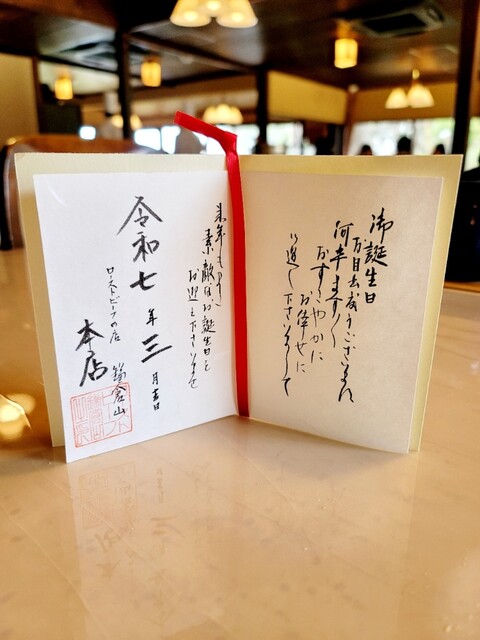 御誕生日
お目出度うございます
何卒ますます
おすこやかに
お倖せに
お過し下さいまして
来年もまた
素敵なお誕生日を
お迎え下さいませ
令和七年三月吉日
ローストビーフの店
鎌倉山
本店